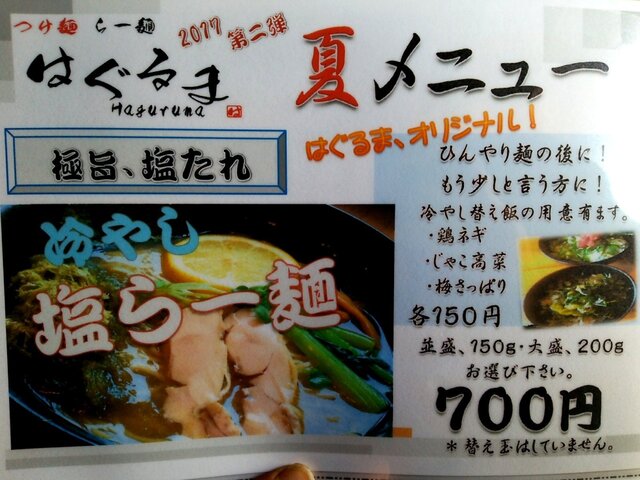 つけ麺 らー麺
はぐるま
Haguruma
2017 第二弾
夏メニュー
はぐるま、オリジナル！
極旨、塩たれ
冷やし
塩らー麺
ひんやり麺の後に！
もう少しと言う方に！
冷やし替え飯の用意有ます。
・鶏ネギ
・じゃこ高菜
・梅さっぱり
各150円
並盛、150g・大盛、200g
お選び下さい。
700円
＊替え玉はしていません。